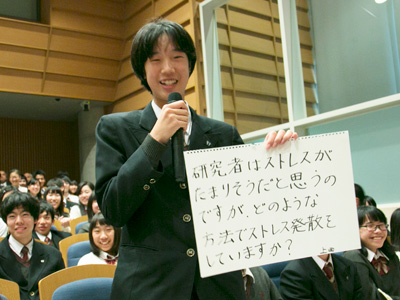 研究者はストレスが
たまりそうだと思うの
ですが、どのような
方法でストレス発散を
していますか?